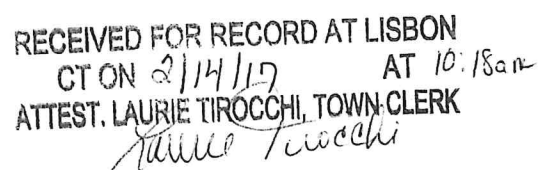 RECEIVED FOR RECORD AT LISBON
CT ON 2/14/17 AT 10:18am
ATTEST. LAURIE TIROCCHI, TOWN CLERK
Laurie Tirocchi